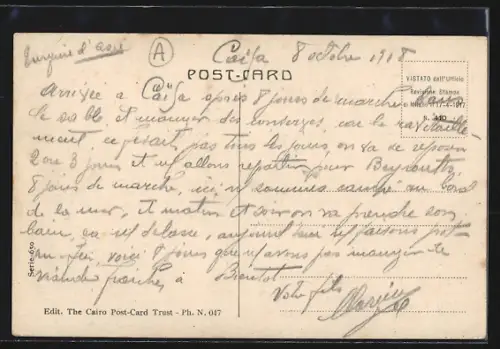 Turquie d'asie
A
Caïfa 8 octobre 1918
POST-CARD
VISTATO dall'Ufficio
Revisione Stampa
Arrivée a Caïfa après 8 jours de marche dans
le sable et manger des conserves, car le ravitaille-
ment ce fesait pas tous les jours on va se reposer
2 ou 3 jours et allons repartir pour Beyrouth,
8 jours de marche, ici ns sommes campé au bord
de la mer, et matin et soir on va prendre son
bain, ca ns delasse, aujourd'hui
voici 8 jours que n'avons pas manger de
viande fraiche, a Bientot
Votre fils
Serie 650
Edit. The Cairo Post-Card Trust - Ph. N. 017